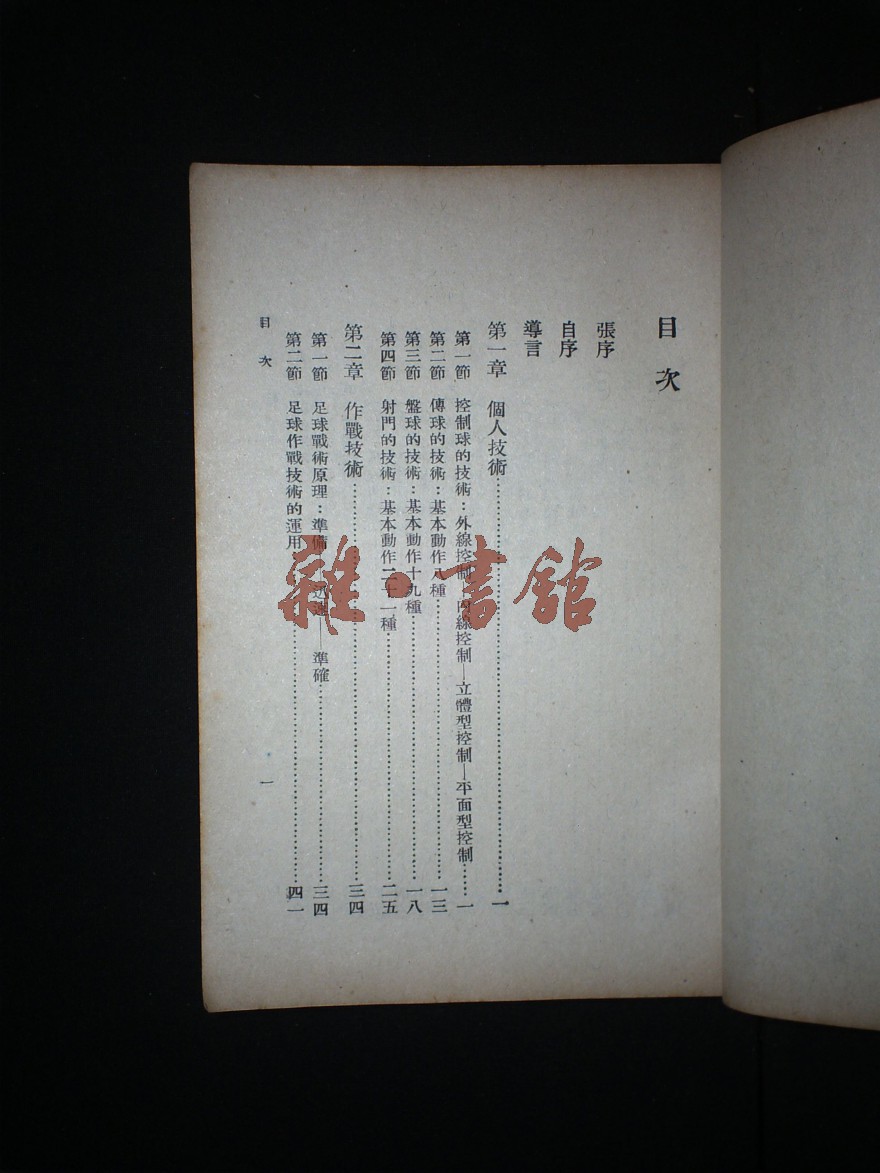 目次
張序
自序
導言
第一章 個人技術…………一
第一節 控制球的技術：外線控制—內線控制—立體型控制—平面型控制……一
第二節 傳球的技術：基本動作八種…………一三
第三節 盤球的技術：基本動作十九種…………一八
第四節 射門的技術：基本動作二十一種…………二五
第二章 作戰技術…………三四
第一節 足球戰術原理：準備——迅速——準確…………三四
第二節 足球作戰技術的運用…………四一
目次
一
雜·書館